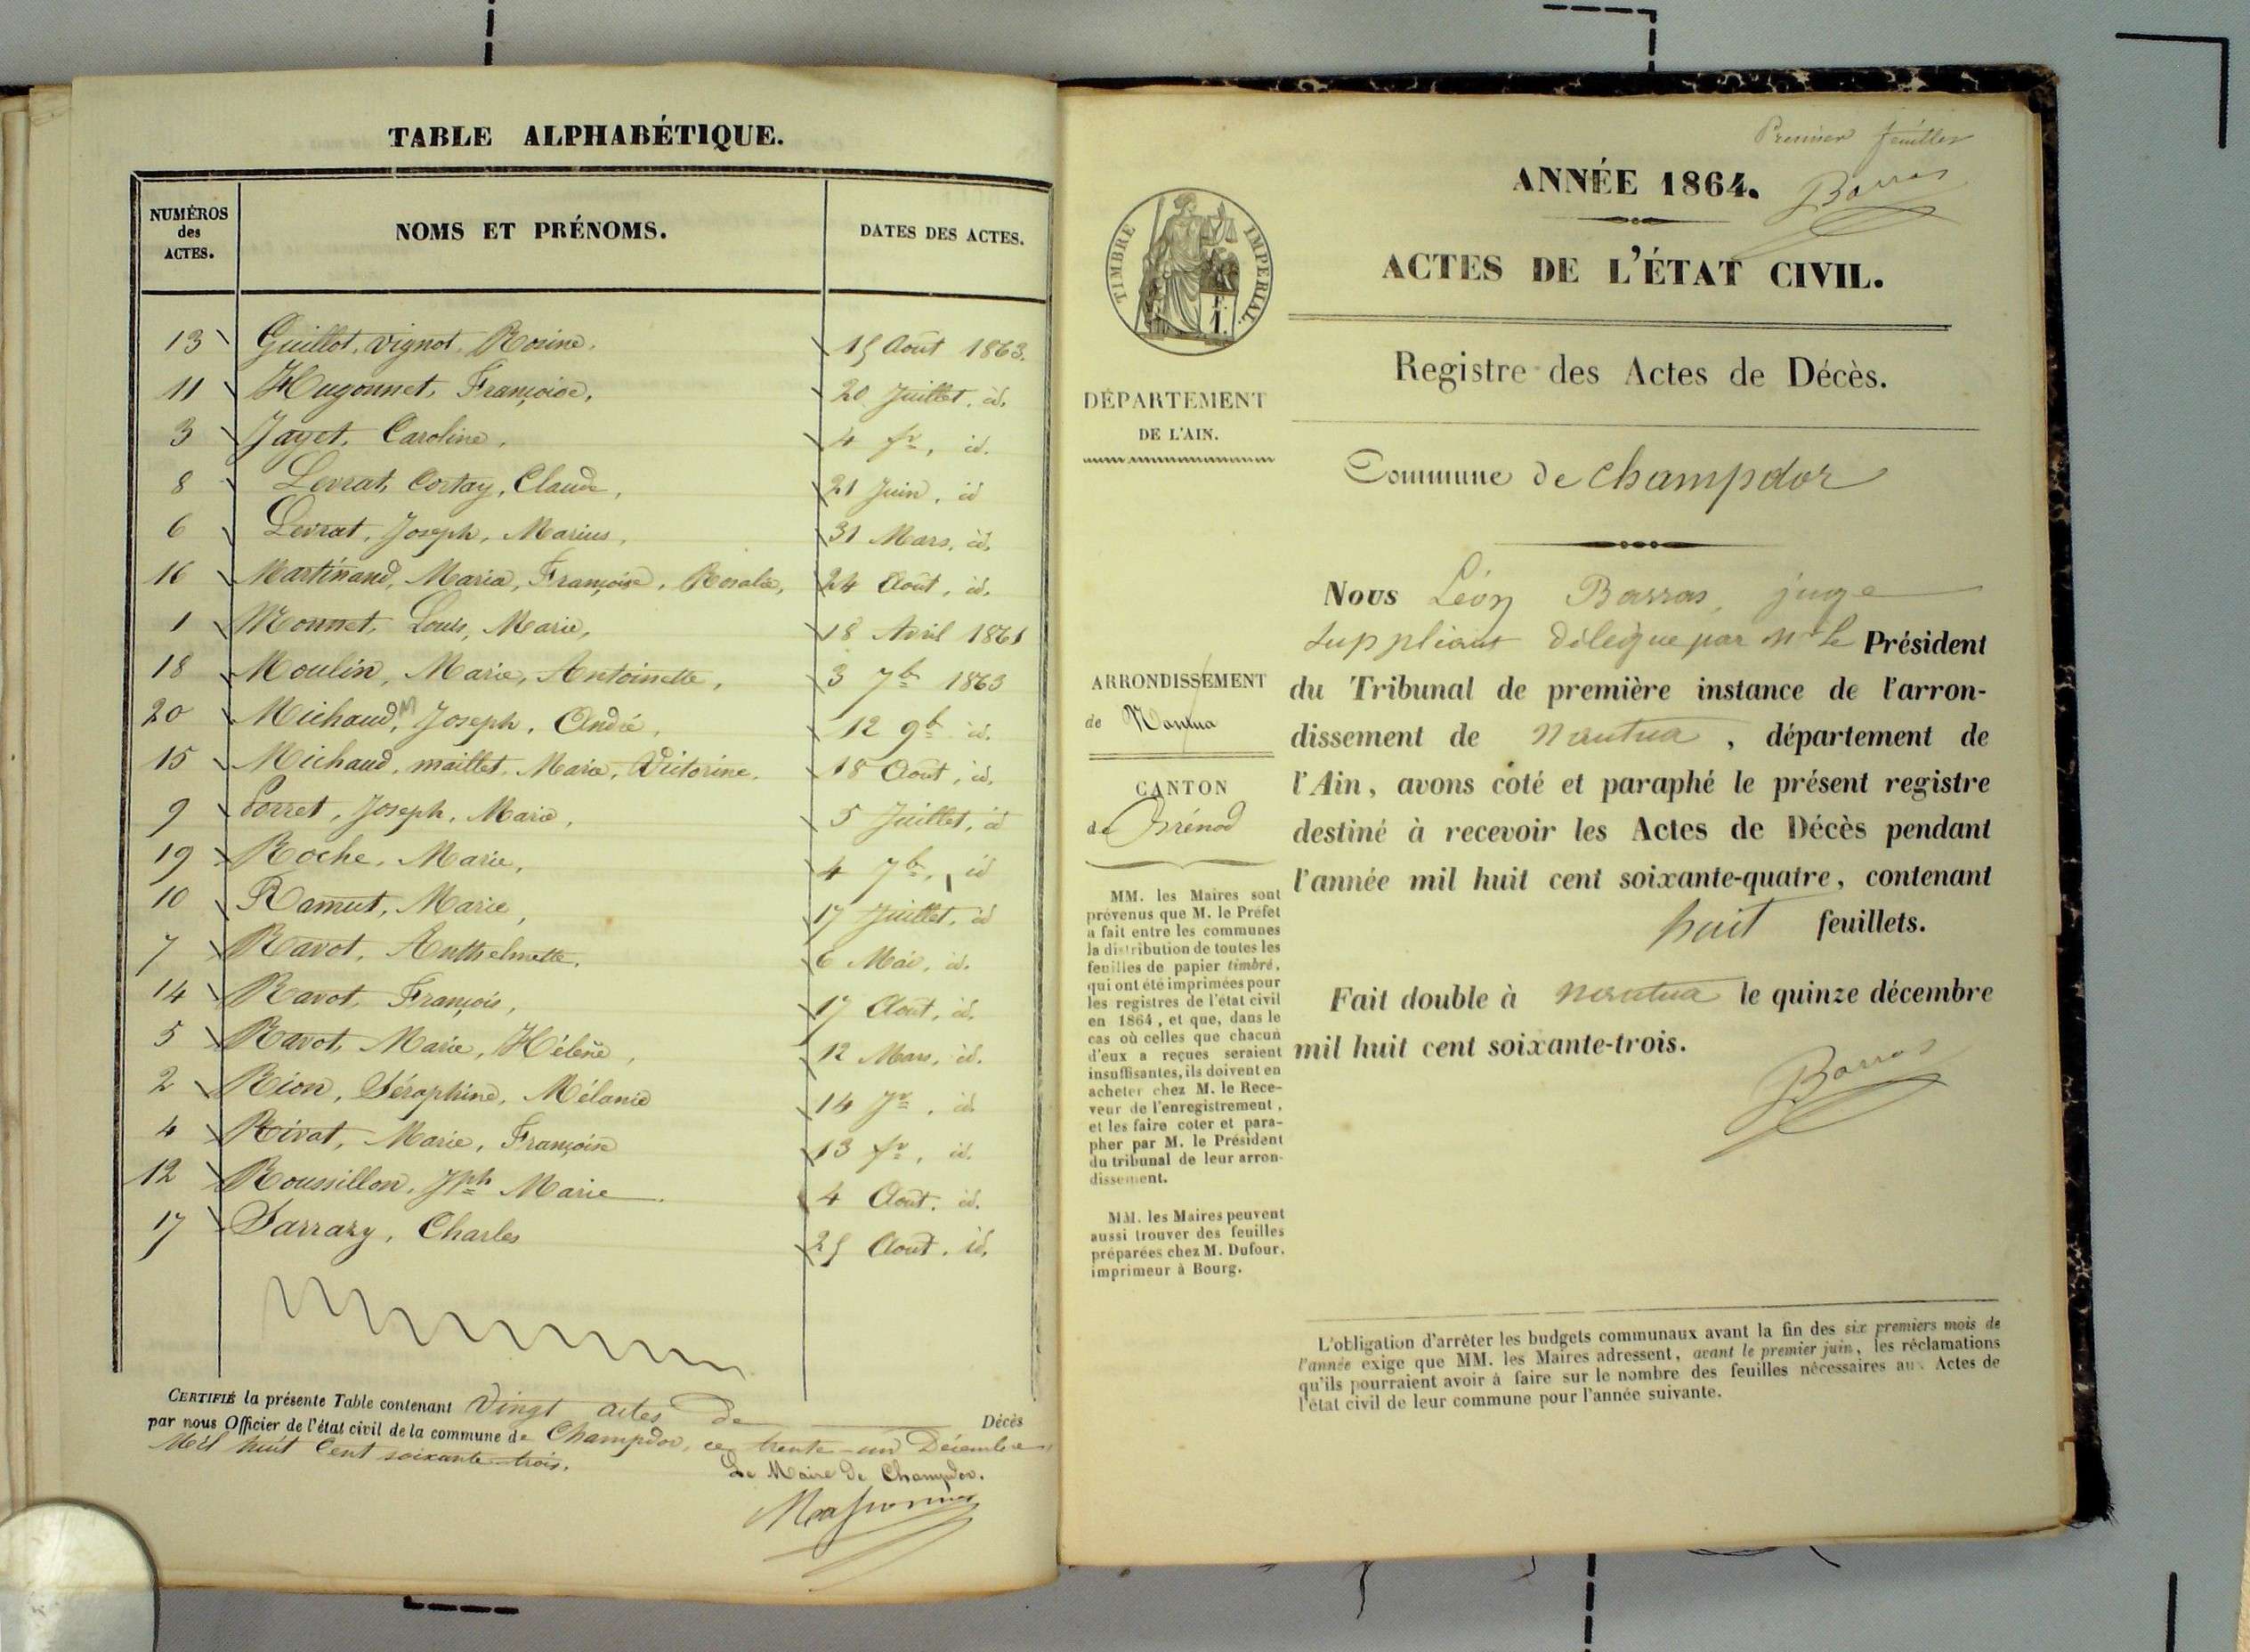 TABLE ALPHABÉTIQUE.
NUMÉROS des ACTES. NOMS ET PRÉNOMS. DATES DES ACTES.
13 Guillot, vignot, Rosine, 15 Août 1863.
11 Hugonnet, Françoise, 20 Juillet, id.
3 Jayet, Caroline, 4 fr, id.
8 Levrat, Cortay, Claude, 21 Juin, id
6 Levrat, Joseph, Marius, 31 Mars, id.
16 Martinand, Maria, Françoise, Rosalie, 24 Août, id.
1 Monnet, Louis, Marie, 18 Avril 1861
18 Moulin, Marie, Antoinette, 3 7b 1863
20 Michaud, M Joseph, André, 12 9b id.
15 Michaud, maillet, Marie, Victorine, 18 Août, id.
9 Porret, Joseph, Marie, 5 Juillet, id
19 Roche, Marie, 4 7b, id
10 Ramut, Marie, 17 Juillet, id
7 Ravot, Anthelmette, 6 Mai, id.
14 Ravot, François, 17 Août, id.
5 Ravot, Marie, Hélène, 12 Mars, id.
2 Rion, Séraphine, Mélanie 14 Jr, id.
4 Rivat, Marie, Françoise 13 fr, id.
12 Roussillon, Jph Marie 4 Août. id.
17 Sarrazy, Charles 25 Août, id.
CERTIFIÉ la présente Table contenant Vingt actes de Décès
par nous Officier de l'état civil de la commune de Champdor, ce trente-un Décembre
Mil huit Cent soixante-trois.
Le Maire de Champdor.
Premier feuillet
ANNÉE 1864.
Barras
ACTES DE L'ÉTAT CIVIL.
Registre des Actes de Décès.
Commune de Champdor
TIMBRE IMPERIAL.
1.
DÉPARTEMENT
DE L'AIN.
ARRONDISSEMENT
de Nantua
CANTON
de Brénod
MM. les Maires sont
prévenus que M. le Préfet
a fait entre les communes
la distribution de toutes les
feuilles de papier timbré,
qui ont été imprimées pour
les registres de l'état civil
en 1864, et que, dans le
cas où celles que chacun
d'eux a reçues seraient
insuffisantes, ils doivent en
acheter chez M. le Rece-
veur de l'enregistrement,
et les faire coter et para-
pher par M. le Président
du tribunal de leur arron-
dissement.
MM. les Maires peuvent
aussi trouver des feuilles
préparées chez M. Dufour,
imprimeur à Bourg.
Nous Léon Barras, juge
suppléant délégué par Mr le Président
du Tribunal de première instance de l'arron-
dissement de nantua, département de
l'Ain, avons coté et paraphé le présent registre
destiné à recevoir les Actes de Décès pendant
l'année mil huit cent soixante-quatre, contenant
huit feuillets.
Fait double à nantua le quinze décembre
mil huit cent soixante-trois.
Barras
L'obligation d'arrêter les budgets communaux avant la fin des six premiers mois de
l'année exige que MM. les Maires adressent, avant le premier juin, les réclamations
qu'ils pourraient avoir à faire sur le nombre des feuilles nécessaires aux Actes de
l'état civil de leur commune pour l'année suivante.